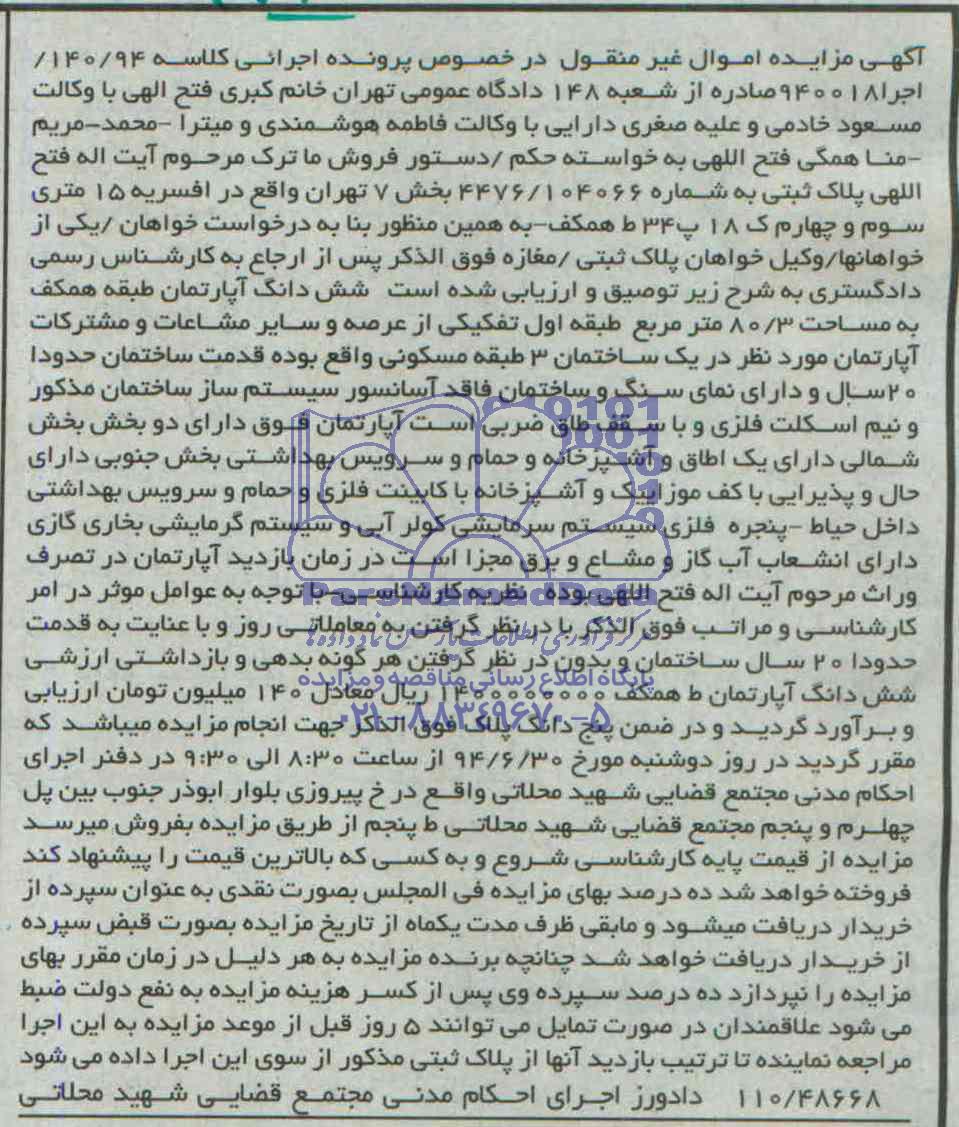 آگهی مزایده اموال غیر منقول در خصوص پرونده اجرائی کلاسه ۱۴۰/۹۴/
اجرا۹۴۰۰۱۸صادره از شعبه ۱۴۸ دادگاه عمومی تهران خانم کبری فتح الهی با وکالت
مسعود خادمی و علیه صغری دارایی با وکالت فاطمه هوشمندی و میترا -محمد-مریم
-منا همگی فتح اللهی به خواسته حکم /دستور فروش ما ترک مرحوم آیت اله فتح
اللهی پلاک ثبتی به شماره ۴۴۷۶/۱۰۴۰۶۶ بخش ۷ تهران واقع در افسریه ۱۵ متری
سوم و چهارم ک ۱۸ پ۳۴ ط همکف-به همین منظور بنا به درخواست خواهان /یکی از
خواهانها/وکیل خواهان پلاک ثبتی /مغازه فوق الذکر پس از ارجاع به کارشناس رسمی
دادگستری به شرح زیر توصیق و ارزیابی شده است شش دانگ آپارتمان طبقه همکف
به مساحت ۸۰/۳ متر مربع طبقه اول تفکیکی از عرصه و سایر مشاعات و مشترکات
آپارتمان مورد نظر در یک ساختمان ۳ طبقه مسکونی واقع بوده قدمت ساختمان حدودا
۲۰سال و دارای نمای سنگ و ساختمان فاقد آسانسور سیستم ساز ساختمان مذکور
و نیم اسکلت فلزی و با سقف طاق ضربی است آپارتمان فوق دارای دو بخش بخش
شمالی دارای یک اطاق و آشپزخانه و حمام و سرویس بهداشتی بخش جنوبی دارای
حال و پذیرایی با کف موزاییک و آشپزخانه با کابینت فلزی و حمام و سرویس بهداشتی
داخل حیاط -پنجره فلزی سیستم سرمایشی کولر آبی و سیستم گرمایشی بخاری گازی
دارای انشعاب آب گاز و مشاع و برق مجزا است در زمان بازدید آپارتمان در تصرف
وراث مرحوم آیت اله فتح اللهی بوده نظریه کارشناسی-با توجه به عوامل موثر در امر
ParsNamadData
کارشناسی و مراتب فوق الذکر با در نظر گرفتن به معاملاتی روز و با عنایت به قدمت
حدودا ۲۰ سال ساختمان و بدون در نظر گرفتن هر گونه بدهی و بازداشتی ارزشی
پایگاه اطلاع رسانی مناقصه و مزایده
شش دانگ آپارتمان ط همکف ۱۴۰۰۰۰۰۰۰۰ ریال معادل ۱۴۰ میلیون تومان ارزیابی
۰۲۱-۸۸۳۴۹۶۷۰-۵
و برآورد گردید و در ضمن پنج دانگ پلاک فوق الذکر جهت انجام مزایده میباشد که
مقرر گردید در روز دوشنبه مورخ ۹۴/۶/۳۰ از ساعت ۸:۳۰ الی ۹:۳۰ در دفتر اجرای
احکام مدنی مجتمع قضایی شهید محلاتی واقع در خ پیروزی بلوار ابوذر جنوب بین پل
چهلرم و پنجم مجتمع قضایی شهید محلاتی ط پنجم از طریق مزایده بفروش میرسد
مزایده از قیمت پایه کارشناسی شروع و به کسی که بالاترین قیمت را پیشنهاد کند
فروخته خواهد شد ده درصد بهای مزایده فی المجلس بصورت نقدی به عنوان سپرده از
خریدار دریافت میشود و مابقی ظرف مدت یکماه از تاریخ مزایده بصورت قبض سپرده
از خریدار دریافت خواهد شد چنانچه برنده مزایده به هر دلیل در زمان مقرر بهای
مزایده را نپردازد ده درصد سپرده وی پس از کسر هزینه مزایده به نفع دولت ضبط
می شود علاقمندان در صورت تمایل می توانند ۵ روز قبل از موعد مزایده به این اجرا
مراجعه نماینده تا ترتیب بازدید آنها از پلاک ثبتی مذکور از سوی این اجرا داده می شود
۱۱۰/۴۸۶۶۸ دادورز اجرای احکام مدنی مجتمع قضایی شهید محلاتی